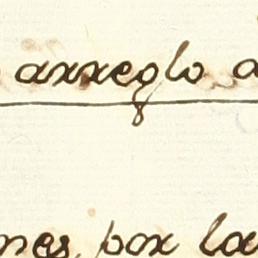 arreglo a
nes, por la